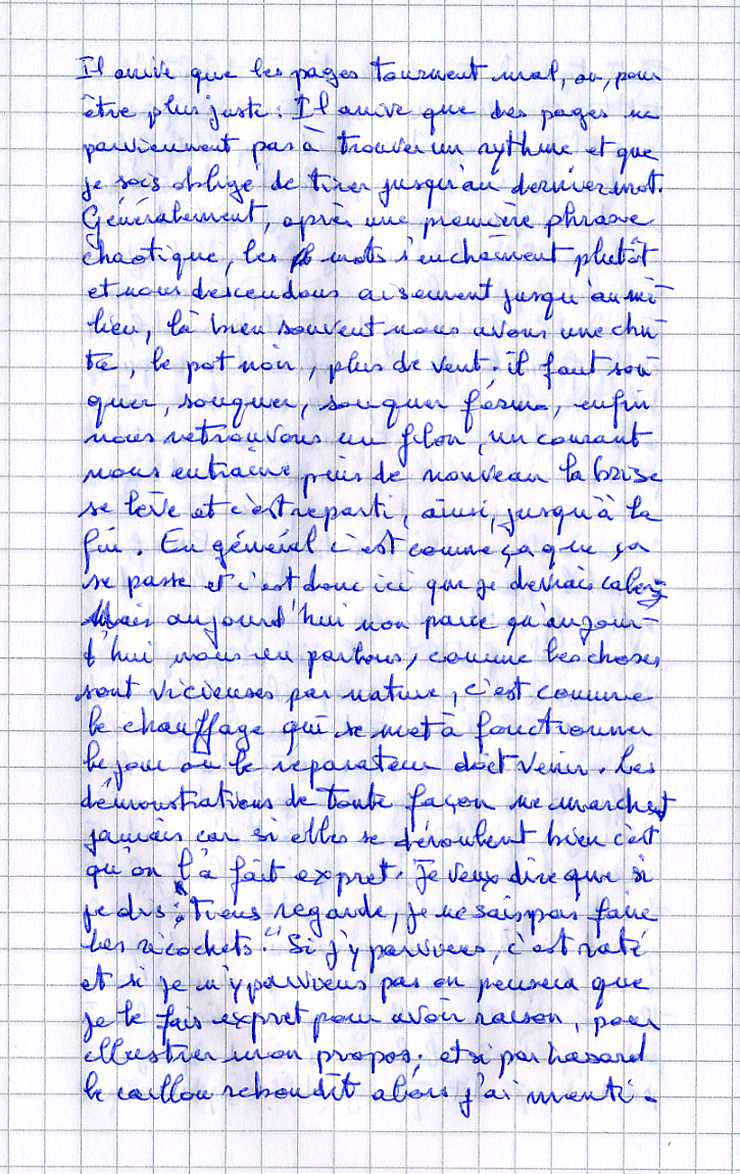 Il arrive que les pages tournent mal, ou, pour
être plus juste : Il arrive que des pages ne
parviennent pas à trouver un rythme et que
je sois obligé de tirer jusqu'au dernier mot.
Généralement, après une première phrase
chaotique, les mots s'enchaînent plutôt
et nous descendons aisement jusqu'au mi-
lieu, là bien souvent nous avons une chu-
te, le pot noir, plus de vent ; il faut sou-
quer, souquer, souquer ferme, enfin
nous retrouvons un filon, un courant
nous entraîne puis de nouveau la brise
se lève et c'est reparti, ainsi, jusqu'à la
fin. En général c'est comme ça que ça
se passe et c'est donc ici que je devrais caler
Mais aujourd'hui non parce qu'aujour-
d'hui nous en parlons, comme les choses
sont vicieuses par nature, c'est comme
le chauffage qui se met à fonctionner
le jour où le réparateur doit venir. Les
démonstrations de toute façon ne marchent
jamais car si elles se déroulent bien c'est
qu'on l'a fait expret. Je veux dire que si
je dis : "Tiens regarde, je ne sais pas faire
les ricochets." Si j'y parviens, c'est raté
et si je n'y parviens pas on pensera que
je le fais expret pour avoir raison, pour
illustrer mon propos ; et si par hasard
le caillou rebondit alors j'ai menti.